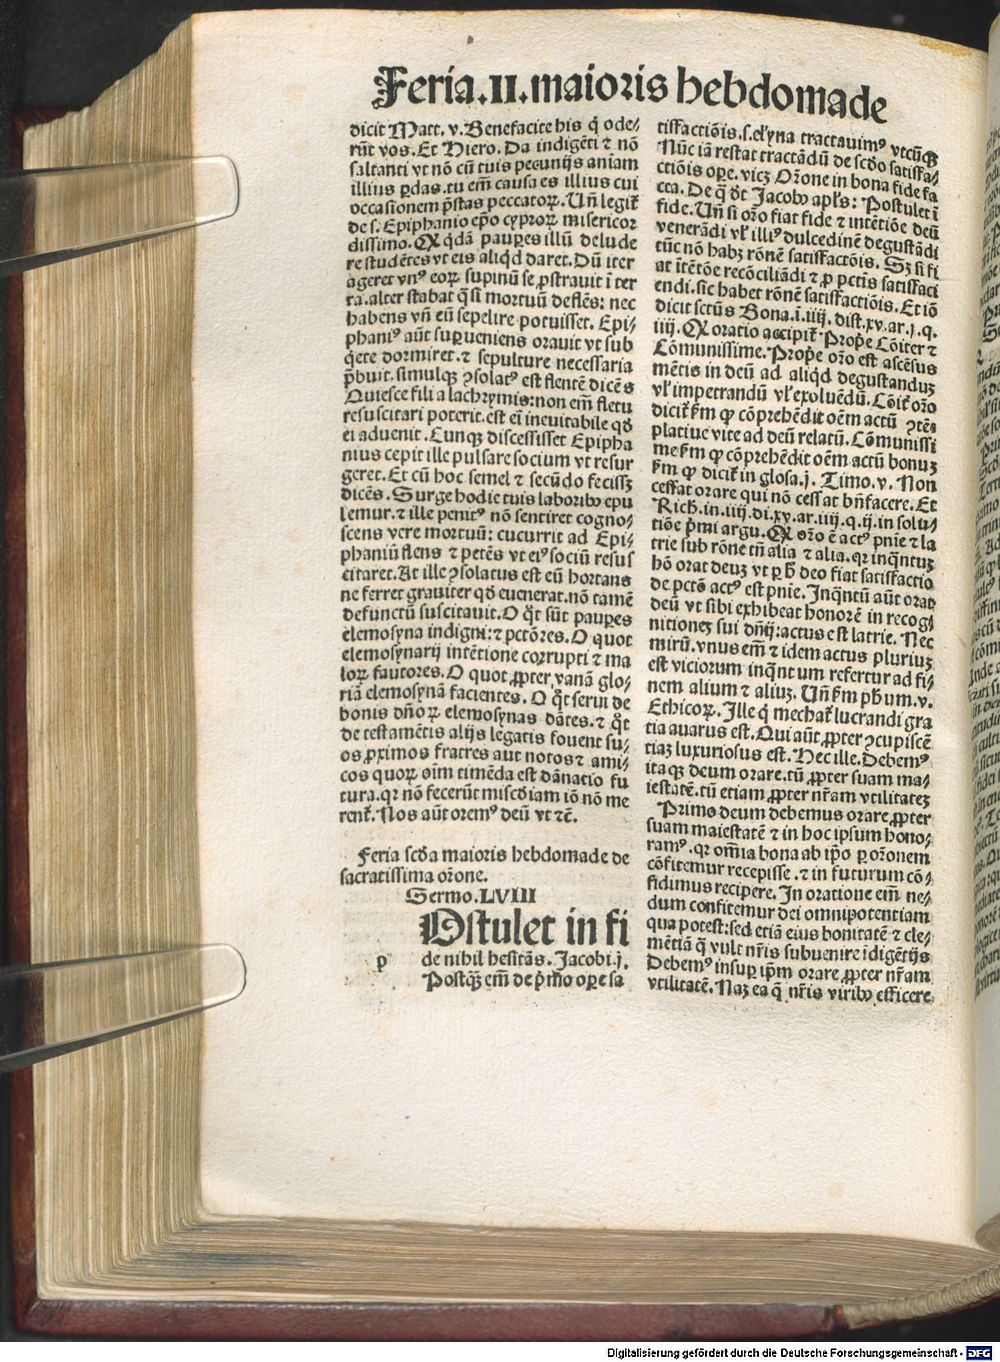 Feria.II.maioris hebdomade
dicit Matt. v. Benefacite his q̄ ode⸗
rūt vos. Et Hiero. Da indigēti ⁊ nō
saltanti vt nō cū tuis pecunijs aniam
illius ꝑdas. tu em̄ causa es illius cui
occasionem p̄stas peccatoꝝ. Uñ legiť
de s. Epiphanio ep̄o cyproꝝ misericor
dissimo. Qꝫ q̄dā pauꝑes illū delude
re studētes vt eis aliqd daret. Dū iter
ageret vnꝰ eoꝝ supinū se ꝓstrauit ī ter
ra. alter stabat q̄si mortuū deflēs: nec
habens vñ eū sepelire potuisset. Epi⸗
phaniꝰ aūt suꝑueniens orauit vt sub
q̄ete dormiret. ⁊ sepulture necessaria
p̄buit. simulqꝫ ꝯsolatꝰ est flentē dicēs
Quiesce fili a lachrymis: non em̄ fletu
resuscitari poterit. est ei ineuitabile qđ
ei aduenit. Cunqꝫ discessisset Epipha
nius cepit ille pulsare socium vt resur
geret. Et cū hoc semel ⁊ secūdo fecissꝫ
dicēs. Surge hodie tuis laboribꝰ epu
lemur. ⁊ ille penitꝰ nō sentiret cogno⸗
scens vere mortuū: cucurrit ad Epi⸗
phaniū flens ⁊ petēs vt eiꝰ sociū resus
citaret. At ille ꝯsolatus est eū hortans
ne ferret grauiter qđ euenerat. nō tamē
defunctū suscitauit. O q̄t sūt pauꝑes
elemosyna indigni: ⁊ pctōres. O quot
elemosynarij intētione corrupti ⁊ ma
loꝝ fautores. O quot ꝓpter vanā glo⸗
riā elemosynā facientes. O q̄t serui de
bonis dn̄oꝝ elemosynas dātes. ⁊ q̄t
de testamētis alijs legatis fouent su⸗
os ꝓximos fratres aut notos ⁊ ami⸗
cos quoꝝ oīm timēda est dānatio fu
tura. qꝛ nō fecerūt miscđiam iō nō me
renť. Nos aūt oremꝰ deū vt ⁊c̄.
Feria scđa maioris hebdomade de
sacratissima orōne.
Sermo.LVIII
Ostulet in fi
p de nihil hesitās. Jacobi.j.
Postqꝫ em̄ de p̄mo oꝑe sa
tissactiōis.s.elyna tractauimꝰ vtcūqꝫ
Nūc iā restat tractādū de scđo satissa⸗
ctiōis oꝑe. vicꝫ Orōne in bona fide fa
cta. De q̄ dt̄ Jacobꝰ apľs: Postulet ī
fide. Uñ si orō fiat fide ⁊ intētiōe deū
venerādi vľ illiꝰ dulcedinē degustādi
tūc nō habꝫ rōnē satissactōis. Sꝫ si fi
at ītētōe recōciliādi ⁊ ꝓ pctīs satissaci
endi. sic habet rōnē satissactiōis. Et iō
dicit sctūs Bona. ī. iiij. dist. xv. ar. j. q.
iiij. Qꝫ oratio accipiť Prop̄e Cōiter ⁊
Cōmunissime. Prop̄e orō est ascēsus
mētis in deū ad aliqd degustanduꝫ
vľ impetrandū vľ exoluēdū. Cōiť orō
diciť ẜm ꝙ cōprehēdit oēm actū ꝯtē⸗
platiue vite ad deū relatū. Cōmunissi
me ẜm ꝙ cōprehēdit oēm actū bonuꝫ
ẜm ꝙ diciť in glosa. j. Timo. v. Non
cessat orare qui nō cessat bn̄facere. Et
Rich. in. iiij. di. xv. ar. iiij. q. ij. in solu⸗
tiōe p̄mi argu. Qꝫ orō ē actꝰ pn̄ie ⁊ la
trie sub rōne tn̄ alia ⁊ alia. qꝛ inq̄ntuꝫ
hō orat deuꝫ vt ꝑ ħ deo fiat satissactio
de pctō actꝰ est pn̄ie. Inq̄ntū aūt orat
deū vt sibi exhibeat honorē in recogi
nitioneꝫ sui dn̄ij: actus est latrie. Nec
mirū. vnus em̄ ⁊ idem actus pluriuꝫ
est viciorum inq̄ntum refertur ad fi⸗
nem alium ⁊ aliuꝫ. Uñ ẜm ph̄um. v.
Ethicoꝝ. Ille q̄ mechať lucrandi gra
tia auarus est. Qui aūt ꝓpter ꝯcupiscē
tiaꝫ luxuriosus est. Hec ille. Debemꝰ
itaqꝫ deum orare. tū ꝓpter suam ma⸗
iestatē. tū etiam ꝓpter nr̄am vtilitateꝫ
Primo deum debemus orare ꝓpter
suam maiestatē ⁊ in hoc ipsum hono⸗
ramꝰ. qꝛ om̄ia bona ab ip̄o ꝑ orōnem
cōfitemur recepisse. ⁊ in futurum cō⸗
fidimus recipere. In oratione em̄ ne⸗
dum confitemur dei omnipotentiam
qua potest: sed etiā eius bonitatē ⁊ cle⸗
mētiā q̄ vult nr̄is subuenire īdigētijs
Debemꝰ insuꝑ ip̄m orare ꝓpter nr̄am
vtilitatē. Naꝫ ea q̄ nr̄is viribꝰ efficere
Digitalisierung gefördert durch die Deutsche Forschungsgemeinschaft - DFG